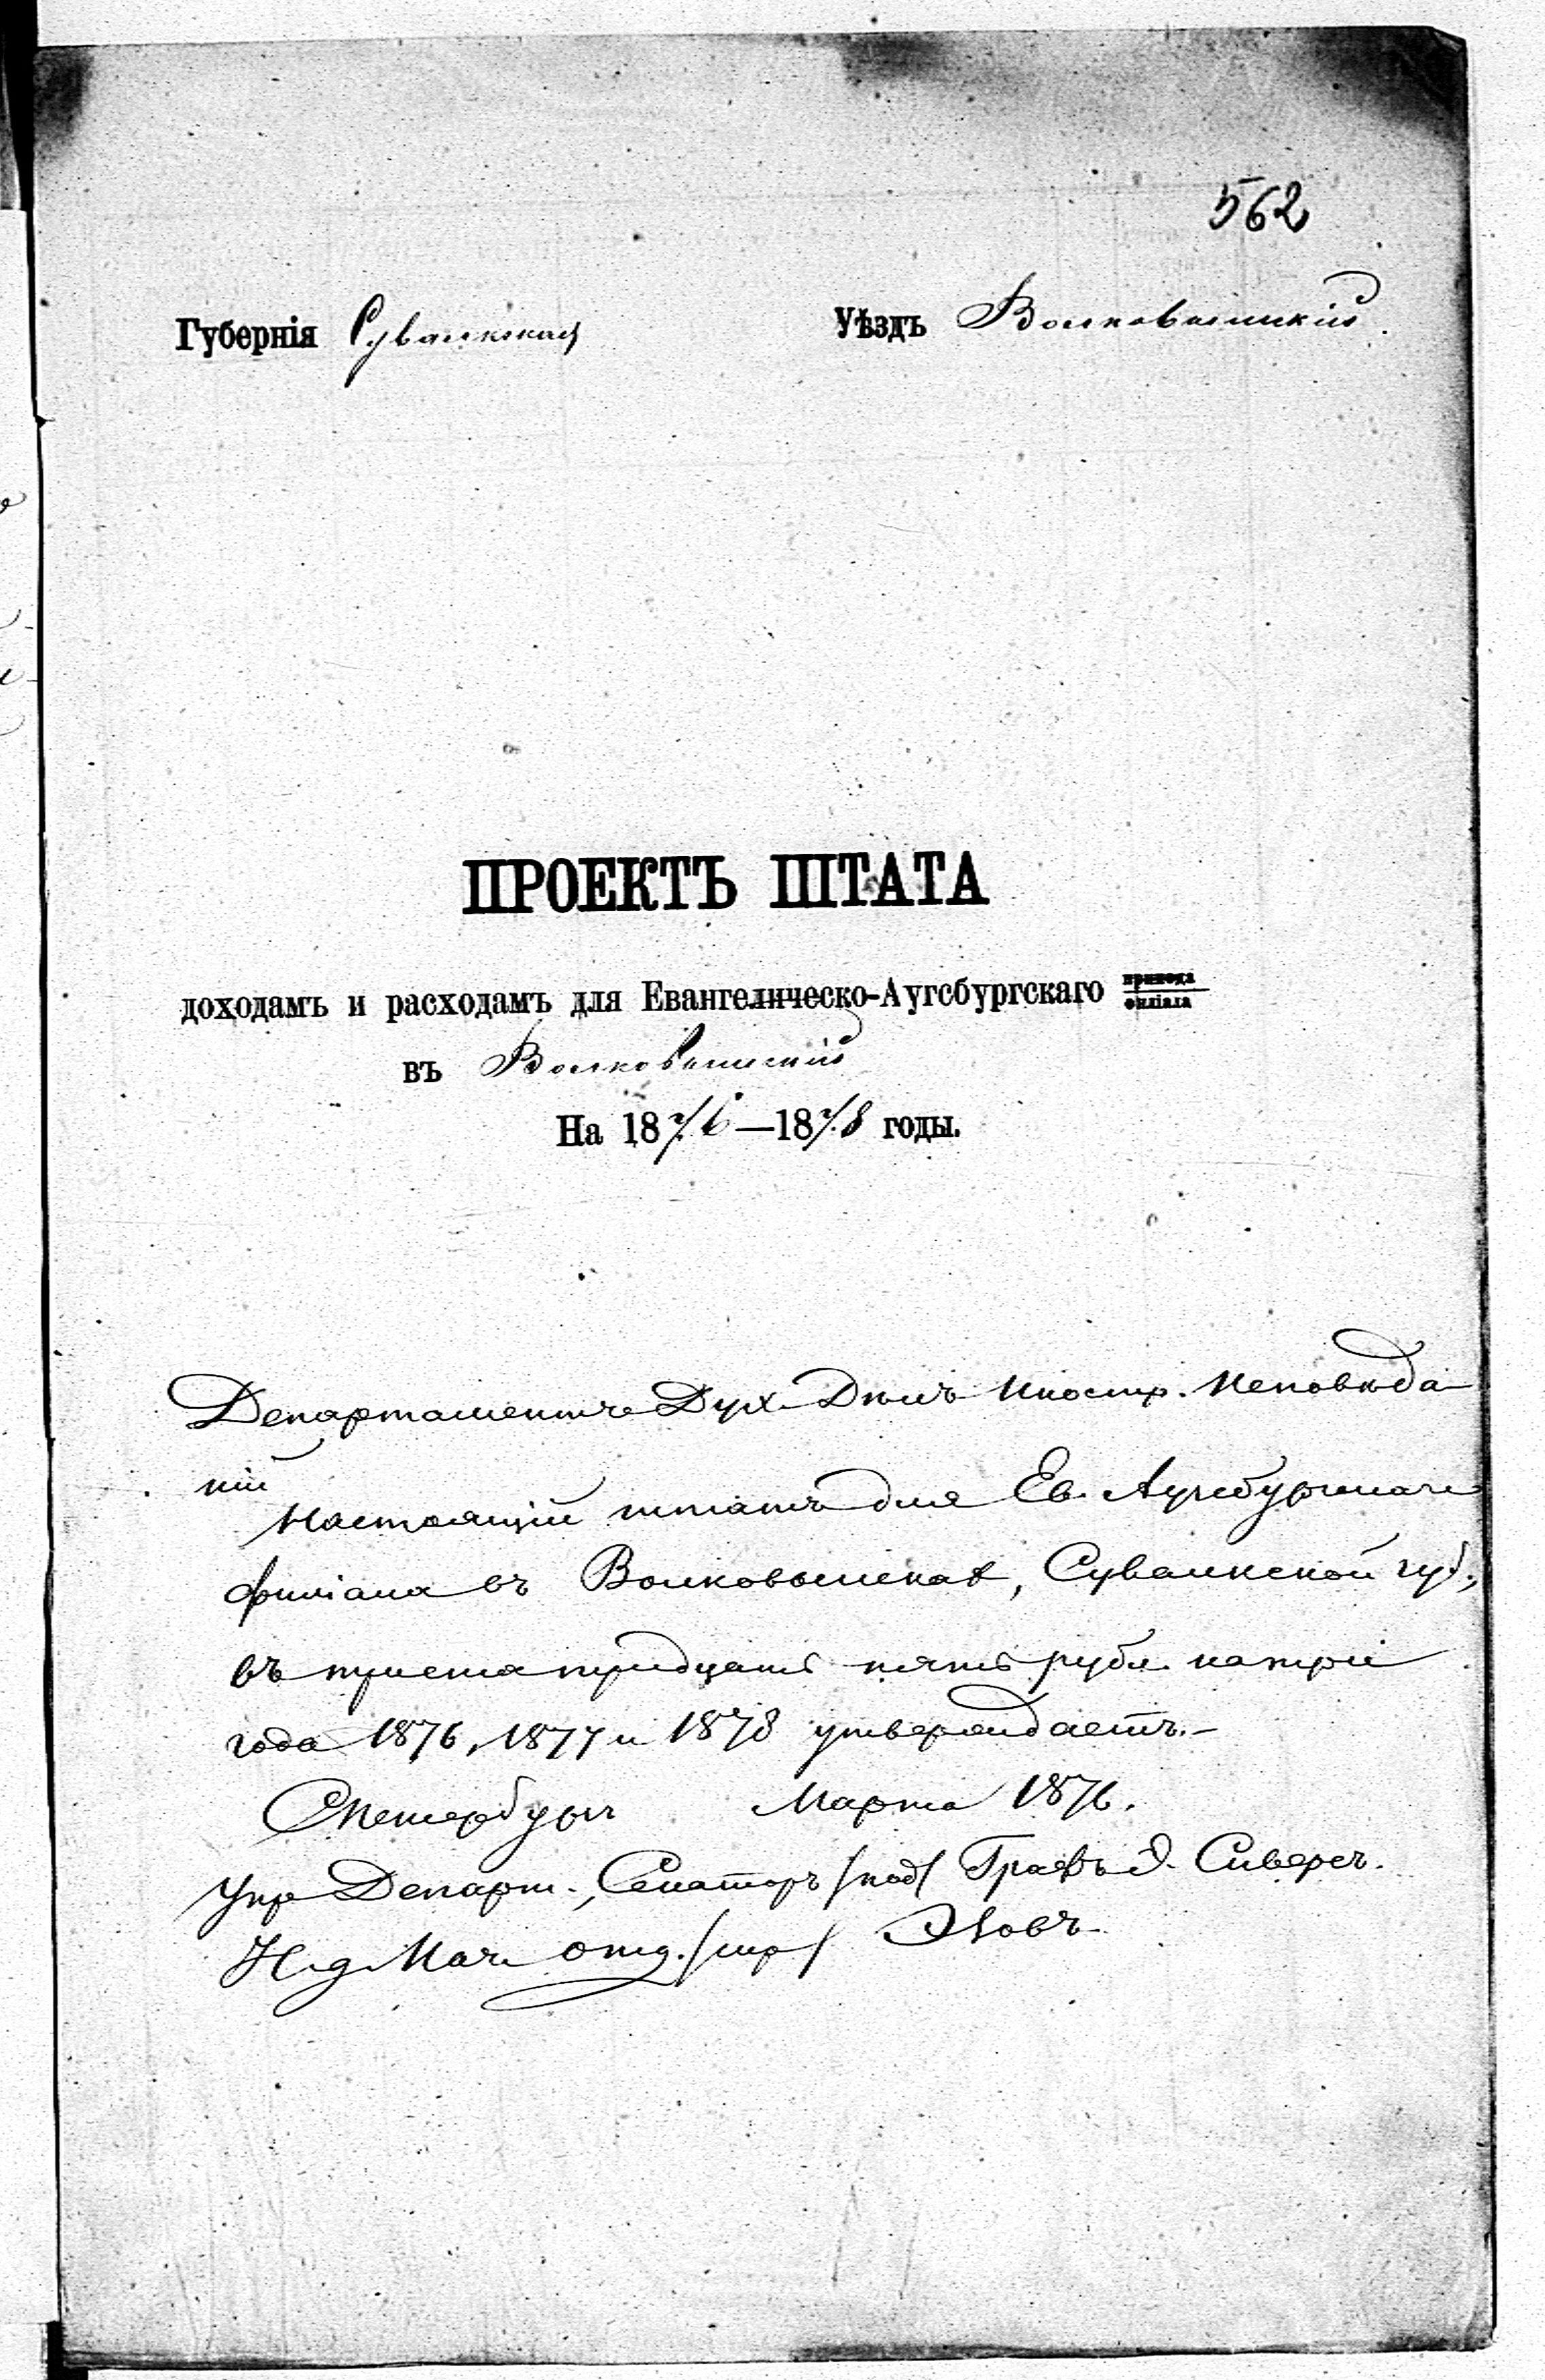 562
Губернія Сувалкская Уѣздъ Волковышскій.
ПРОЕКТЪ ШТАТА
доходамъ и расходамъ для Евангелическо-Аугсбургскаго прихода филіала
въ Волковышскій
На 1876—1878 годы.
Департаментъ Дух. Дѣлъ Иностр. Исповѣда-
ній
Настоящій штатъ для Ев. Аугсбургскаго
филіала въ Волковышкахъ, Сувалкской губ.,
въ триста тридцать пять рубл. на три
года 1876, 1877 и 1878 утверждаетъ.-
СПетербургъ Марта 1876.
Упр. Департ., Сенаторъ /под/ Графъ Э. Сиверсъ.
И. д. Нач. отд. /скр/